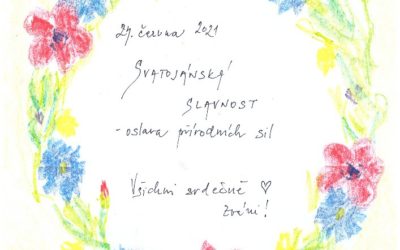 24. června 2021
SVATOJÁNSKÁ
SLAVNOST
- oslava přírodních sil
Všichni srdečně ♡
zváni!